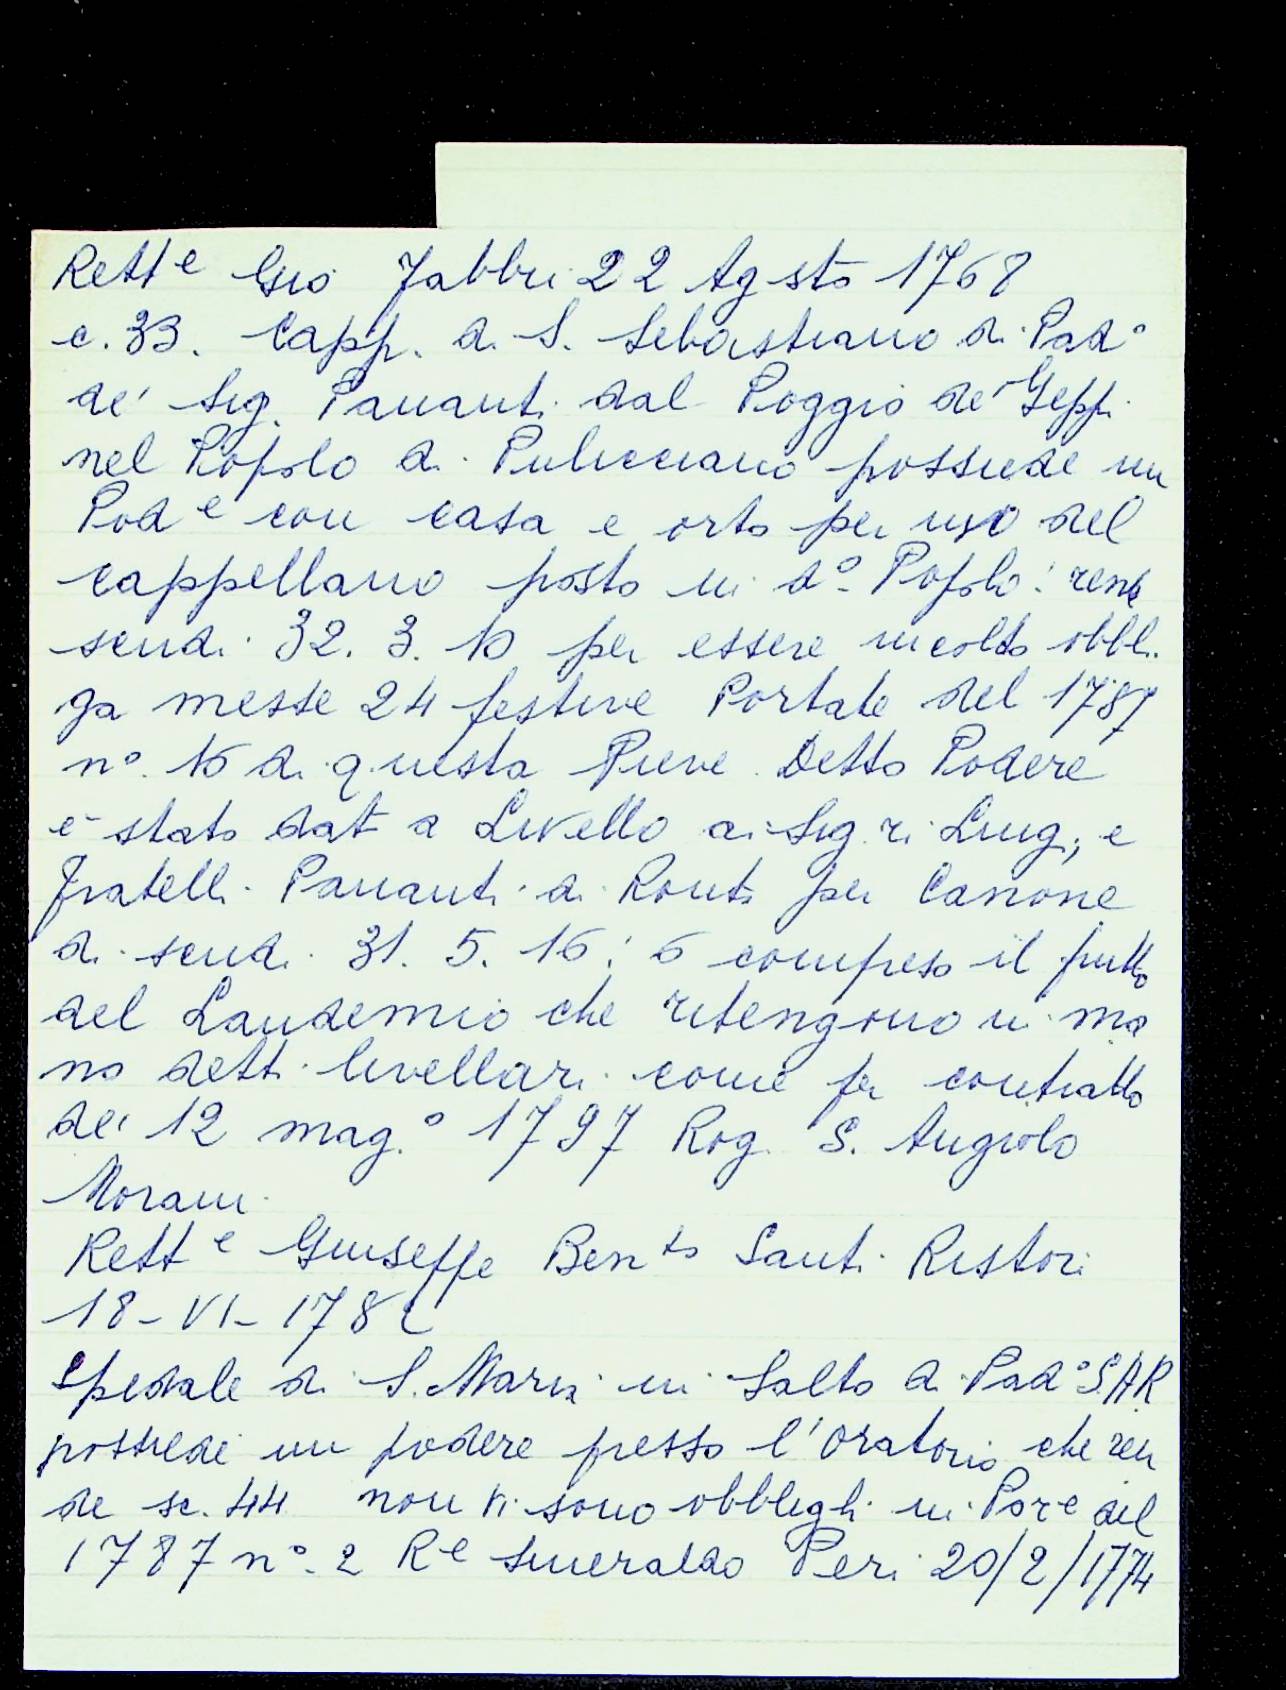 Rett e Gio Fabbri 22 Agsto 1768
c. 33. Capp. di S. Sebastiano di Pad°
de' Sig. Pananti dal Poggio de' Geppi
nel Popolo di Pulicciano possiede un
Pod e con casa e orto per uso del
cappellano posto in d°. Popolo: rende
scudi 32. 3. 10 per essere incolto obbli
ga messe 24 festive Portate del 1787
n°. 16 di questa Pieve. Detto Podere
è stato dat a Livello ai Sig.ri Luigi, e
fratelli Pananti di Ronta per Canone
di scudi 31. 5. 16: 6 compreso il frutto
del Laudemio che ritengono in ma
no detti livellari come per contratto
de' 12 mag.° 1797 Rog. S. Angiolo
Morani
Rett e Giuseppe Ben to Santi Ristori
18-VI-178
Spedale di S. Maria in Salto di Pad° S.A.R
possiede un podere presso l'oratorio che ren
de sc. 44 non vi sono obblighi in Por e del
1787 n°. 2 R e Smeraldo Peri 20/2/1774